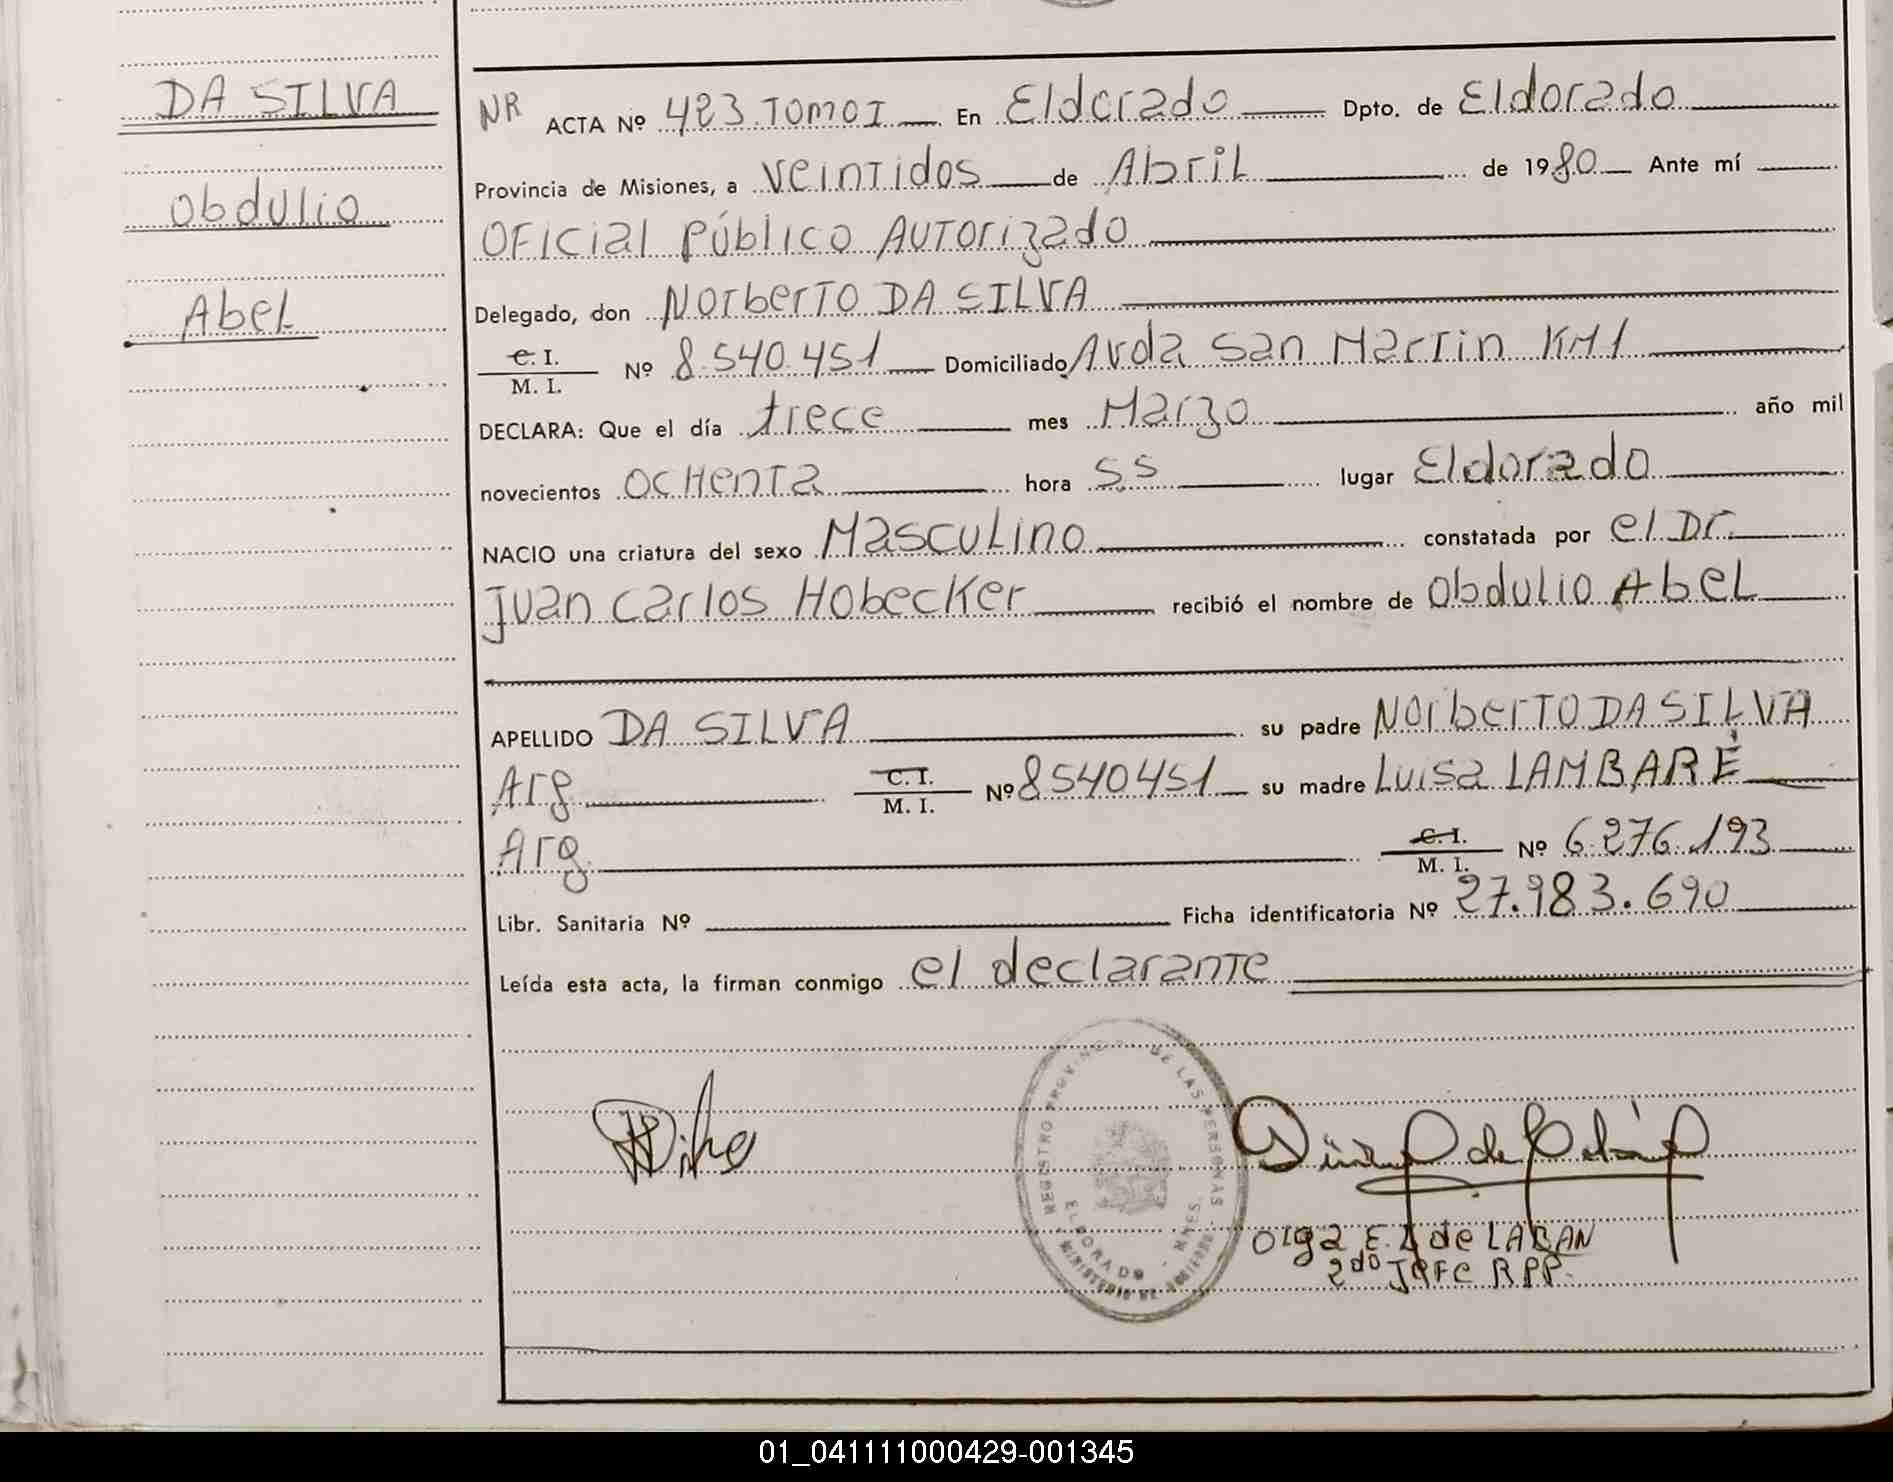 DA SILVA
Obdulio
Abel
NR ACTA Nº 423 TOMO I En Eldorado Dpto. de Eldorado
Provincia de Misiones, a VEINTIDOS de Abril de 1980 Ante mí
OFicial Público AUTorizado
Delegado, don NOrberTO DA SILVA
C. I.
M. I. Nº 8.540.451 Domiciliado Avda San Martin KM 1
DECLARA: Que el día trece mes Marzo año mil
novecientos OCHENTA hora 5.5 lugar Eldorado
NACIO una criatura del sexo MASCULINO constatada por el Dr.
Juan Carlos HObecKer recibió el nombre de Obdulio Abel
APELLIDO DA SILVA su padre NOrberTO DA SILVA
Arg C. I.
M. I. Nº 8540451 su madre Luisa LAMBARÉ
Arg C. I.
M. I. Nº 6.276.193
Libr. Sanitaria Nº Ficha identificatoria Nº 27.983.690
Leída esta acta, la firman conmigo el declarante
REGISTRO PROVINCIAL DE LAS PERSONAS
ELDORADO - MNES.
Olga E. de LABAN
2do JEFE RPP.
01_041111000429-001345